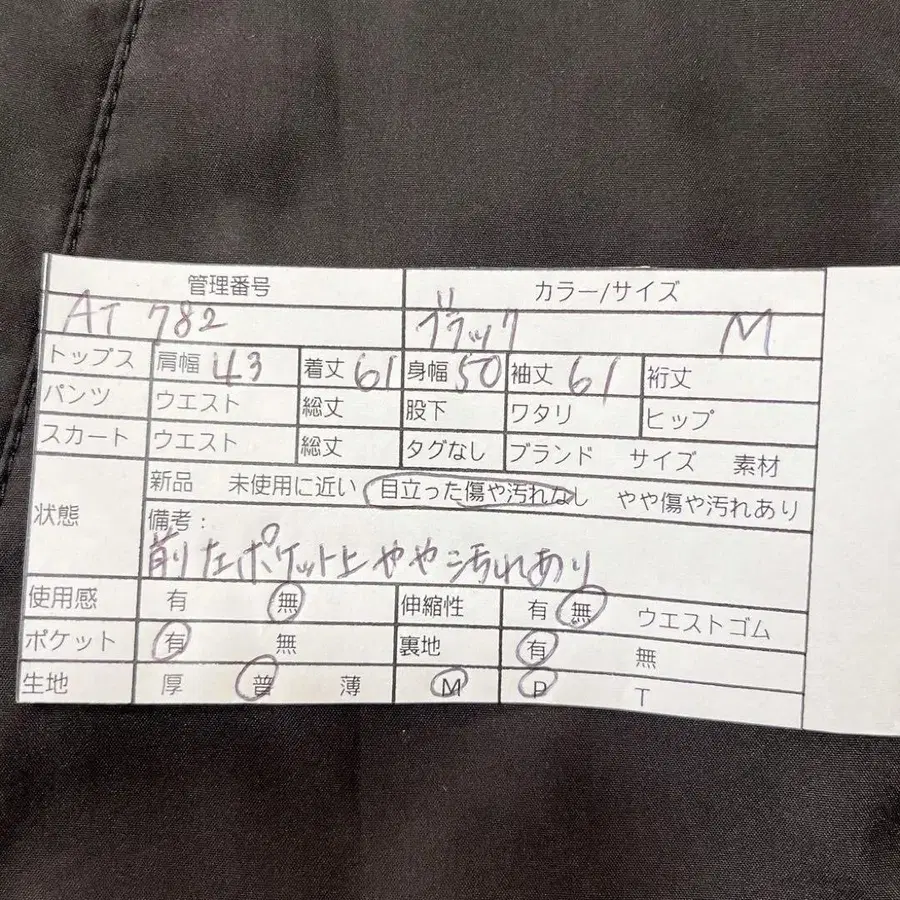 管理番号 カラー/サイズ
AT 782 ブラック M
トップス 肩幅 43 着丈 61 身幅 50 袖丈 61 裄丈
パンツ ウエスト 総丈 股下 ワタリ ヒップ
スカート ウエスト 総丈 タグなし ブランド サイズ 素材
状態 新品 未使用に近い 目立った傷や汚れなし やや傷や汚れあり
備考:
前左ポケット上やや汚れあり
使用感 有 無 伸縮性 有 無 ウエストゴム
ポケット 有 無 裏地 有 無
生地 厚 普 薄 M P T